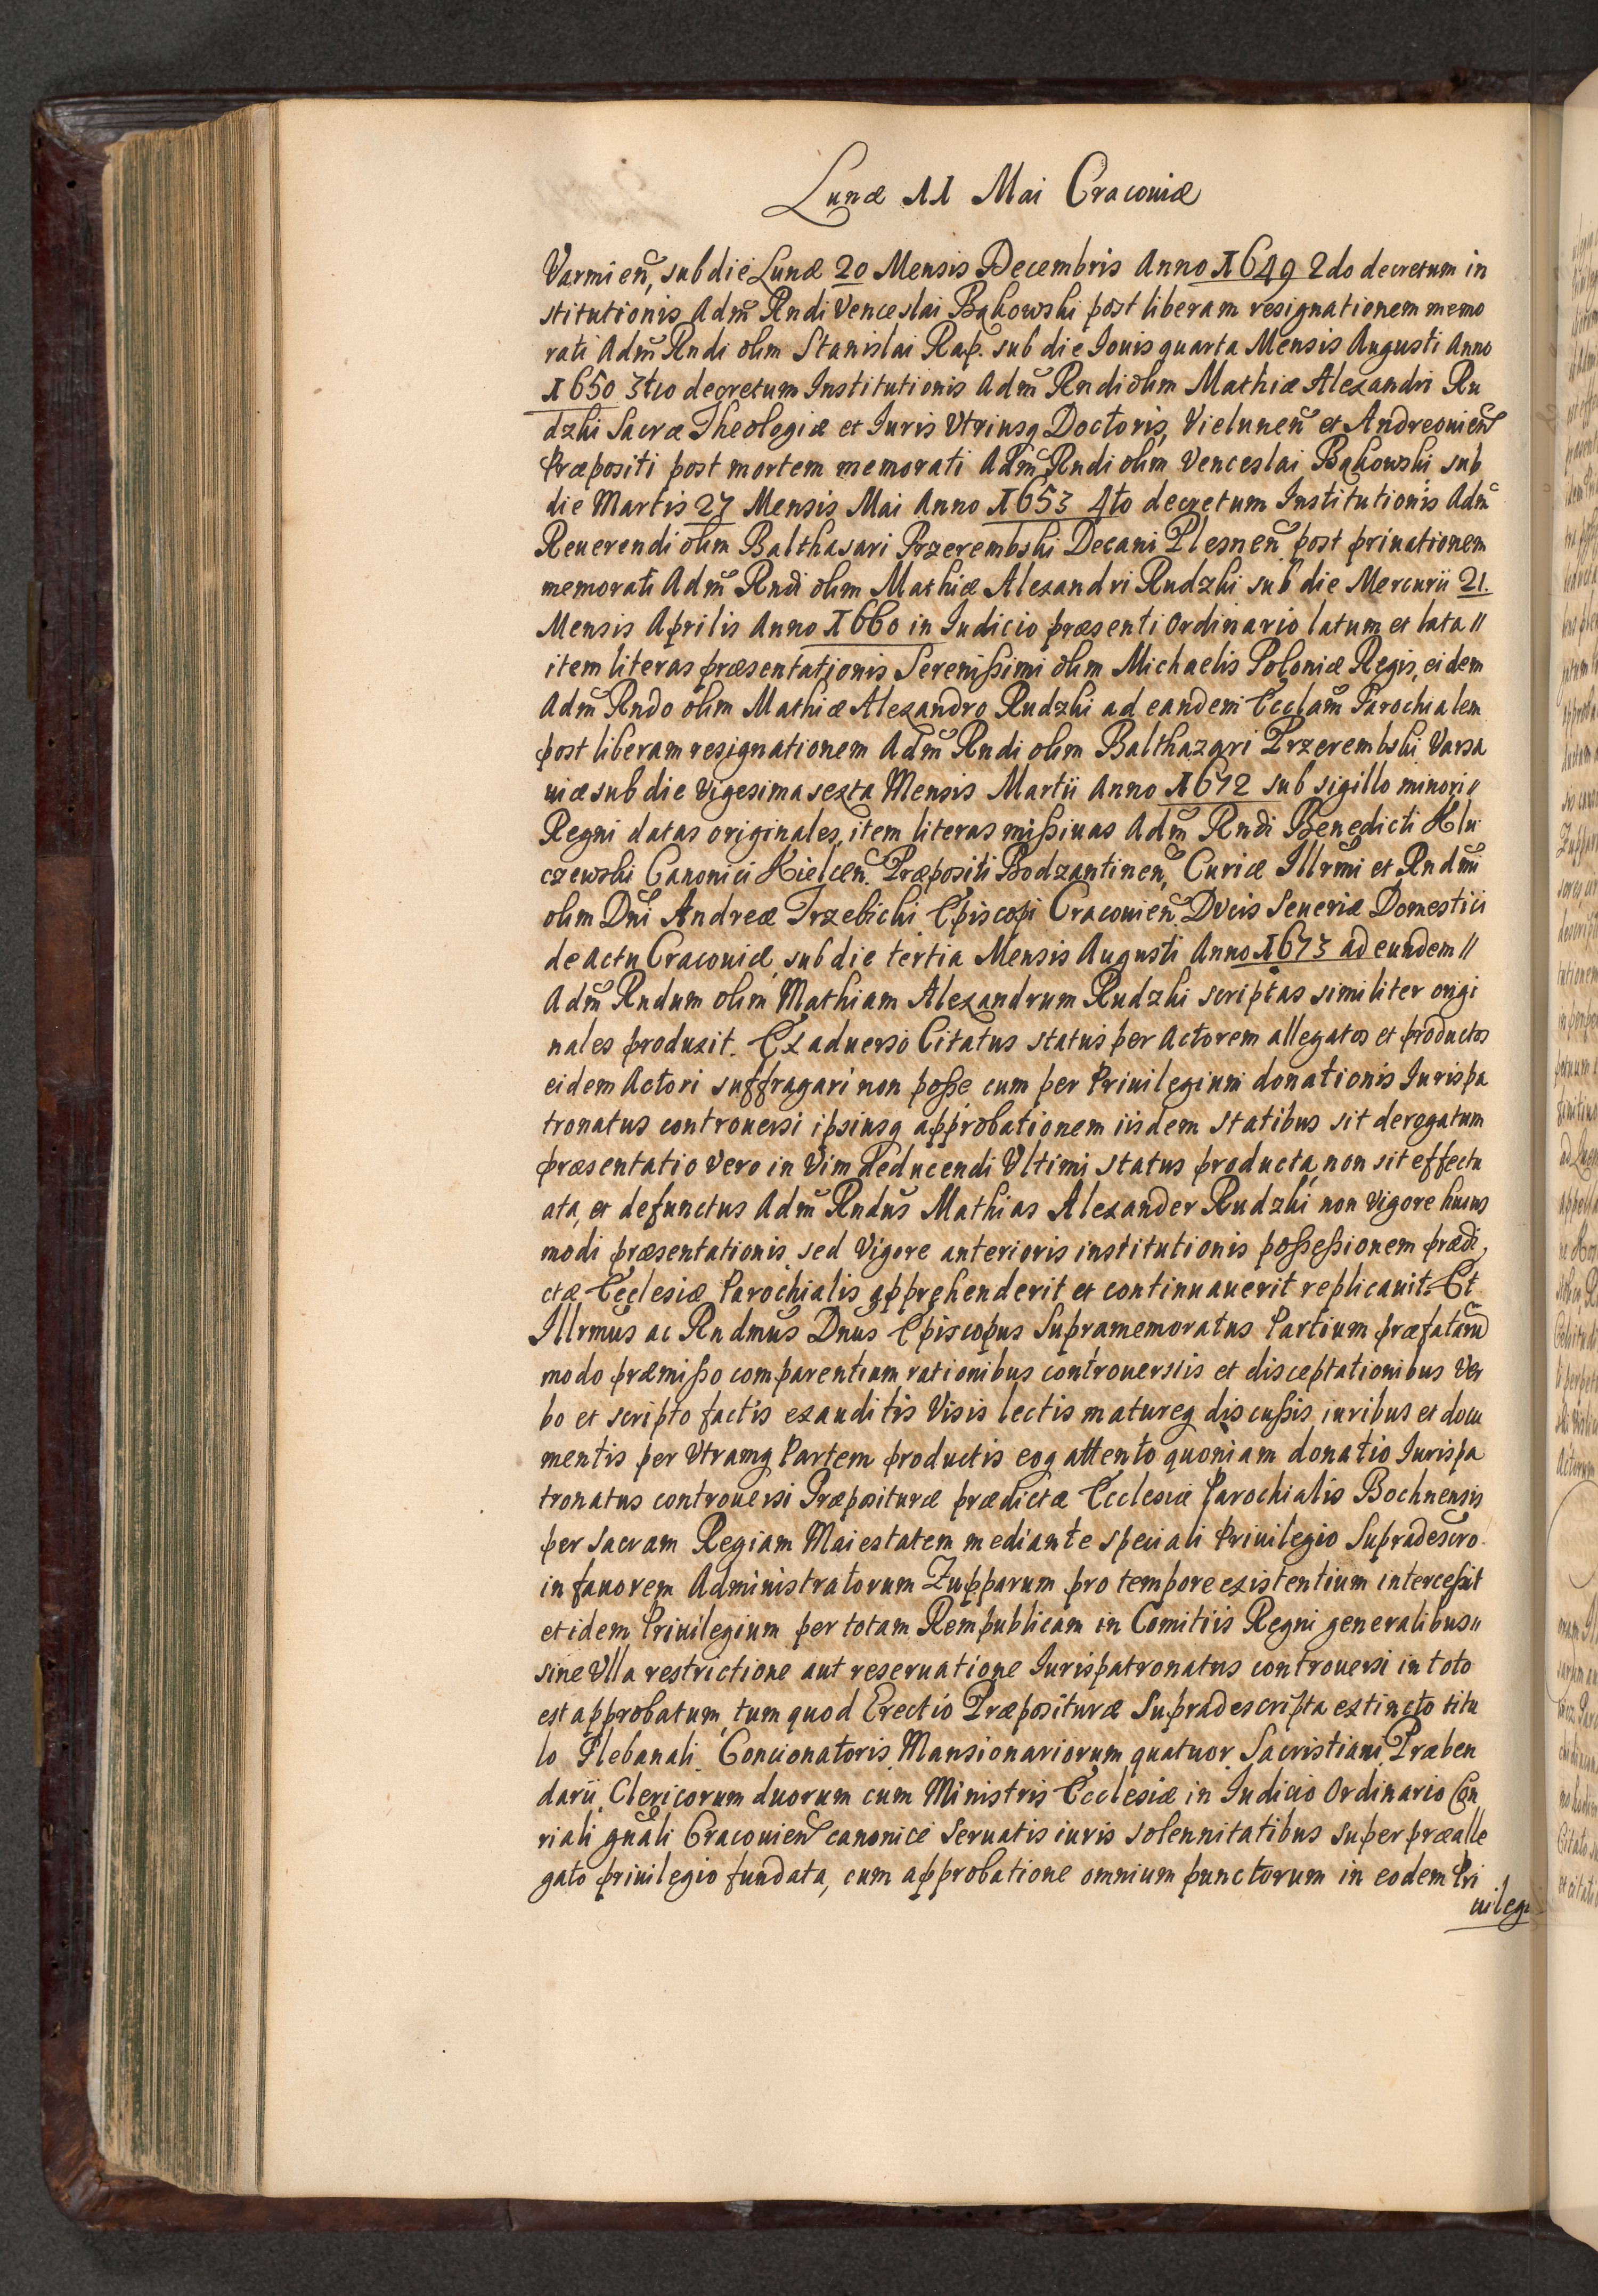 Lunæ 11 Mai Cracouiæ
Varmien̄, sub die Lunæ 20 Mensis Decembris Anno 1649 2do decretum in
stitutionis Adm̄ Rndi Venceslai Bąkowski post liberam resignationem memo
rati Adm̄ Rndi olim Stanislai Rap. sub die Iouis quarta Mensis Augusti Anno
1650 3tio decretum Institutionis Adm̄ Rndi olim Mathiæ Alexandri Ru
dzki Sacræ Theologiæ et Iuris Vtriusq Doctoris, Vielunen̄ et Andreouien̄
Præpositi post mortem memorati Adm̄ Rndi olim Venceslai Bąkowski sub
die Martis 27 Mensis Mai Anno 1653 4to decretum Institutionis Adm̄
Reuerendi olim Balthasari Przerembski Decani Plesnen̄ post priuationem
memorati Adm̄ Rndi olim Mathiæ Alexandri Rudzki sub die Mercurii 21.
Mensis Aprilis Anno 1660 in Iudicio præsenti Ordinario latum et lata //
item literas præsentationis Serenißimi olim Michaelis Poloniæ Regis, eidem
Adm̄ Rndo olim Mathiæ Alexandro Rudzki ad eandem Ecclam̄ Parochialem
post liberam resignationem Adm̄ Rndi olim Balthazari Przerembski Varsa
uiæ sub die Vigesima sexta Mensis Martii Anno 1672 sub sigillo minori //
Regni datas originales, item literas mißiuas Adm̄ Rndi Benedicti Klu
czewski Canonici Kielcen̄. Præpositi Bodzantinen̄, Curiæ Illrmi et Rndm̄i
olim Dn̄i Andreæ Trzebicki Episcopi Cracouien̄ Ducis Seueriæ Domestici
de actu Cracouiæ, sub die tertia Mensis Augusti Anno 1673 ad eundem //
Adm̄ Rndum olim Mathiam Alexandrum Rudzki scriptas similiter origi
nales produxit. Ex aduerso Citatus status per Actorem allegatos et productos
eidem Actori suffragari non poße cum per Priuilegium donationis Iurispa
tronatus controuersi ipsiusq approbationem iisdem statibus sit derogatum
præsentatio vero in Vim deducendi Vltimi status producta, non sit effectu
ata, et defunctus Adm̄ Rndus Mathias Alexander Rudzki non vigore huius
modi præsentationis sed Vigore anterioris institutionis poßeßionem prædi
ctæ Ecclesiæ Parochialis apprehenderit et continuauerit replicauit. Et
Illrmus ac Rndmus Dnus Episcopus Supramemoratus Partium præfataru̅
modo præmißo comparentium rationibus controuersiis et disceptationibus Ver
bo et scripto factis exauditis Visis lectis matureq discußis iuribus et docu
mentis per Vtramq Partem productis eoq attento quoniam donatio Iurispa
tronatus controuersi Præposituræ prædictæ Ecclesiæ Parochialis Bochnensis
per sacram Regiam Maiestatem mediante speciali Priuilegio Supradescro.
in fauorem Administratorum Zupparum pro tempore existentium interceßit
et idem Priuilegium per totam Rempublicam in Comitiis Regni generalibus //
sine Vlla restrictione aut reseruatione Iurispatronatus controuersi in toto
est approbatum, tum quod Erectio Præpositura Supradescripta extincto titu
lo Plebanali. Concionatoris, Mansionariorum quatuor, Sacristiani Præben
darii, Clericorum duorum cum Ministris Ecclesiæ in Iudicio Ordinario Con
riali gnāli Cracouien̄ canonice seruatis iuris solennitatibus super præalle
gato priuilegio fundata, cum approbatione omnium punctorum in eodem Pri
uilegi